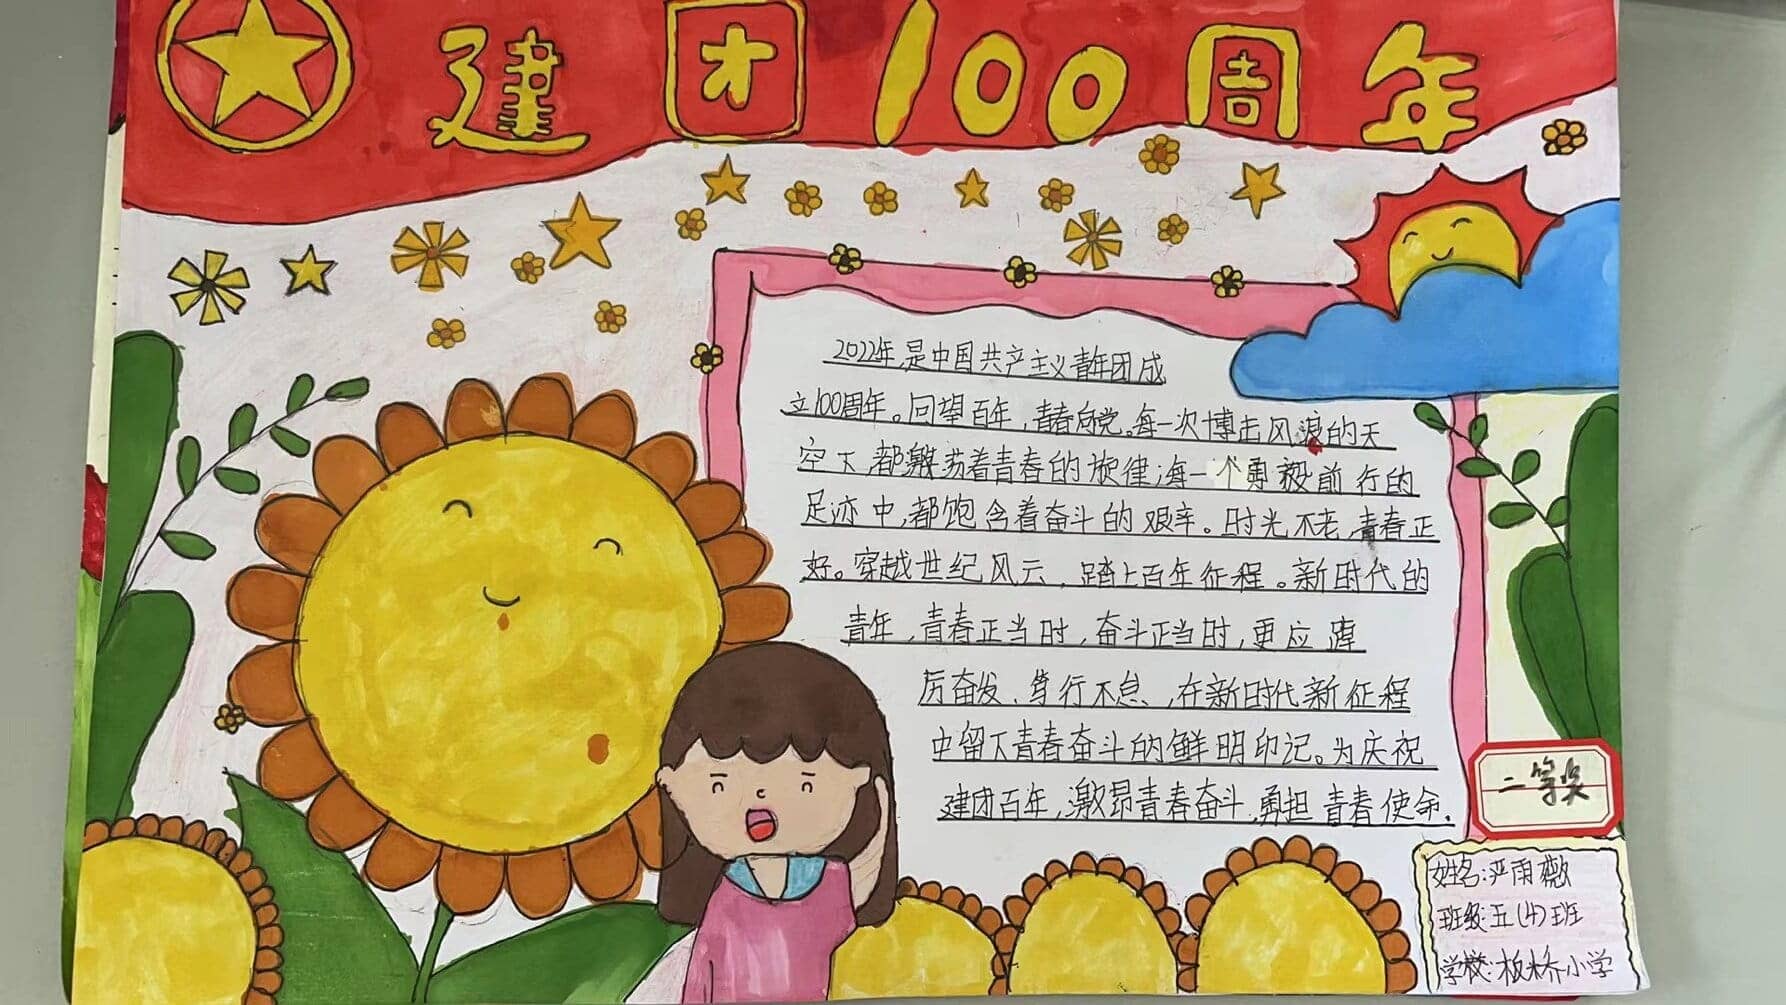 建团100周年
2022年,是中国共产主义青年团成
立100周年。回望百年,青春向党。每一次搏击风浪的天
空下,都飘荡着青春的旋律;每一个勇毅前行的
足迹中,都饱含着奋斗的艰辛。时光不老,青春正
好。穿越世纪风云,踏上百年征程。新时代的
青年,青春正当时,奋斗正当时,更应踔
厉奋发、笃行不怠,在新时代新征程
中留下青春奋斗的鲜明印记。为庆祝
建团百年,激昂青春奋斗,勇担青春使命.
二等奖
姓名:严雨薇
班级:五(4)班
学校:板桥小学